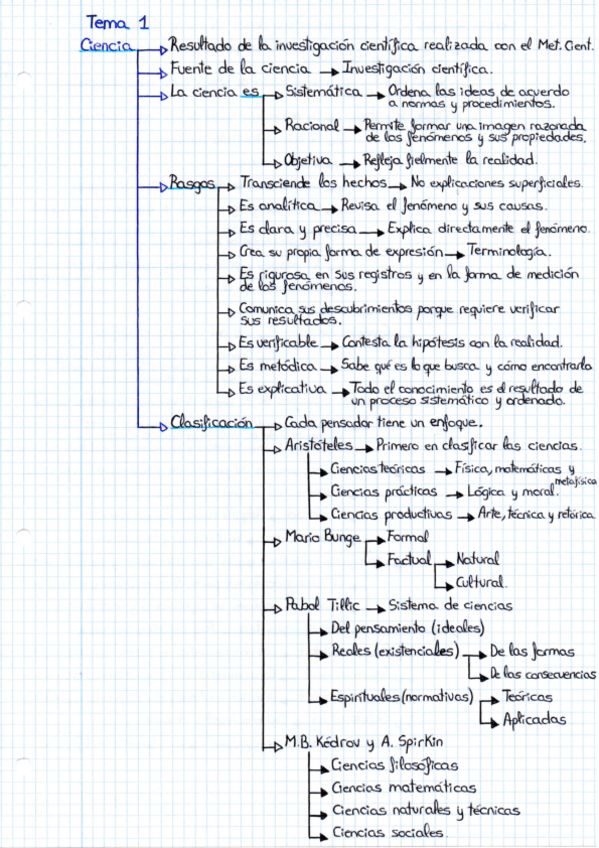 Tema 1
Ciencia → Resultado de la investigación científica realizada con el Met. Cient.
→ Fuente de la ciencia → Investigación científica.
→ La ciencia es → Sistemática → Ordena las ideas de acuerdo
a normas y procedimientos.
→ Racional → Permite formar una imagen razonada
de los fenómenos y sus propiedades.
→ Objetiva → Refleja fielmente la realidad.
→ Rasgos → Transciende los hechos → No explicaciones superficiales.
→ Es analítica → Revisa el fenómeno y sus causas.
→ Es clara y precisa → Explica directamente el fenómeno.
→ Crea su propia forma de expresión → Terminología.
→ Es rigurosa en sus registros y en la forma de medición
de los fenómenos.
→ Comunica sus descubrimientos porque requiere verificar
sus resultados.
→ Es verificable → Contesta la hipótesis con la realidad.
→ Es metódica → Sabe qué es lo que busca y cómo encontrarlo
→ Es explicativa → Todo el conocimiento es el resultado de
un proceso sistemático y ordenado.
→ Clasificación → Cada pensador tiene un enfoque.
→ Aristóteles → Primero en clasificar las ciencias.
→ Ciencias teóricas → Física, matemáticas y
metafísica
→ Ciencias prácticas → Lógica y moral.
→ Ciencias productivas → Arte, técnica y retórica.
→ Mario Bunge → Formal
→ Factual → Natural
→ Cultural.
→ Pabol Tillic → Sistema de ciencias
→ Del pensamiento (ideales)
→ Reales (existenciales) → De las formas
→ De las consecuencias
→ Espirituales (normativas) → Teóricas
→ Aplicadas
→ M.B. Kédrov y A. Spirkin
→ Ciencias filosóficas
→ Ciencias matemáticas
→ Ciencias naturales y técnicas
→ Ciencias sociales.